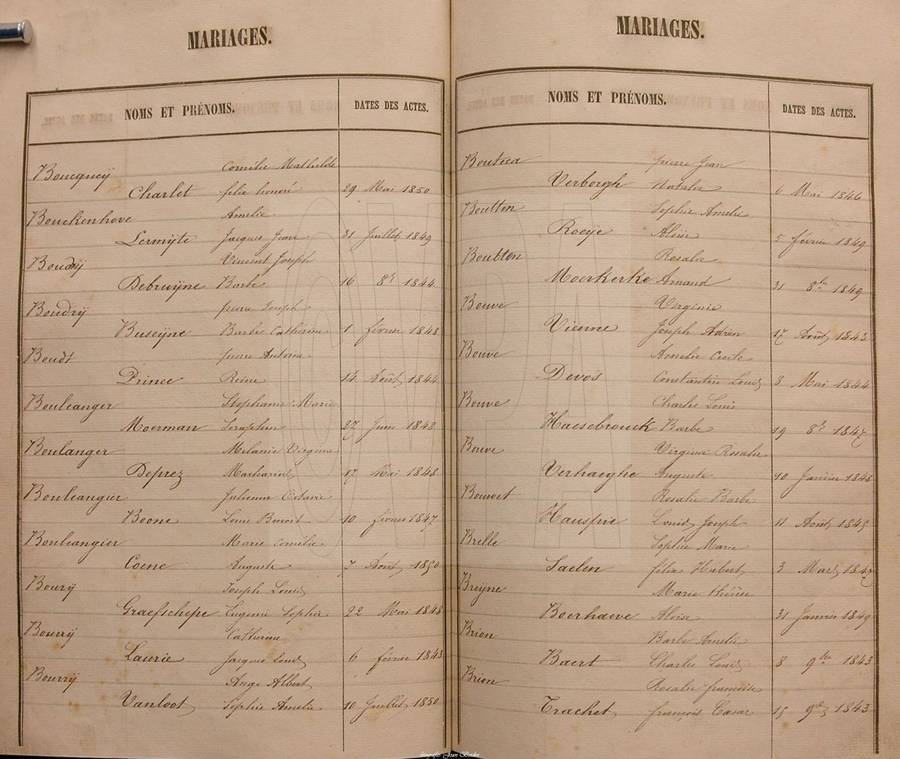 MARIAGES.
NOMS ET PRÉNOMS. DATES DES ACTES.
Boucquey Cornélie Mathilde
Charlet félix honoré 29 Mai 1850
Bouckenhove Amelie
Lermijte Jacques Jean 31 Juillet 1849
Boudrij Vincent Joseph
Debruijne Barbe 16 8e 1844
Boudrij pierre Joseph
Buseijne Barbe Catherine 1 février 1848
Boudt pierre Antoine
Prince Reine 14 Août 1844
Bouleanger Stephanie Marie
Moerman Seraphin 27 Juin 1842
Boulanger Melanie Virginie
Deprez 17 Mai 1848
Bouleangier Julienne Octavie
Boone Louis Benoit 10 février 1847
Bouleangier Marie Cornélie
Coene Auguste 7 Août 1850
Bourij Joseph Louis
Graefschepe Eugenie Sophie 22 Mai 1848
Bourrij Catherine
Laurie Jacques Louis 6 février 1843
Bourrij Ange Albert
Vanloot Sophie Amelie 10 Juillet 1850
MARIAGES.
NOMS ET PRÉNOMS. DATES DES ACTES.
Boutoca pierre Jean
Verborgh Natalie 6 Mai 1846
Boutton Sophie Amelie
Roeije Aloise 5 février 1849
Boutton Rosalie
Moerkerke Amand 31 8bre 1849
Bouve Virginie
Vienne Joseph Adrien 17 Août 1843
Bouve Amelie Cecile
Devos Constantin Louis 8 Mai 1844
Bouve Charles Louis
Haesebrouck Barbe 19 8e 1847
Bouve Virginie Rosalie
Verhaeghe Auguste 20 Janvier 1846
Bouvert Rosalie Barbe
Hauspie Louis Joseph 11 Août 1845
Brelle Sophie Marie
Saelen félix Hubert 3 Mars 1847
Breijne Marie thérèse
Boerhaeve Aloise 31 Janvier 1849
Brion Barbe Amelie
Baert Charles Louis 8 9bre 1843
Brion Rosalie françoise
Trachet françois Cesar 15 9bre 1843